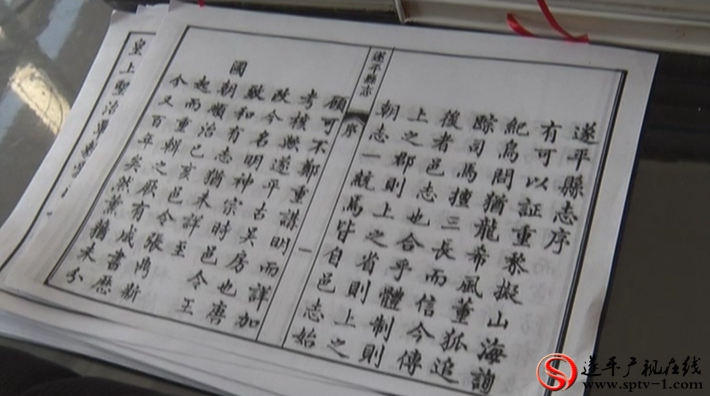 遂平縣志序
有可以証重黎擬山海詢
紀烏問猶龍希風董狐追
踪司馬擅三長而信今傳
後者邑志也合乎體制則
上之郡則上之省則上之
朝志一統焉皆自邑志始
遂平縣志
序
一
顧可不鄭重講明而詳加
考核歟遂平古吳房也唐
改今名明神宗時邑令王
和有志猶未詳至
國朝順治己亥邑令張鼎新
起而重輯之厥有成書歷
今又百年矣然薰蕕未分
皇上聖治覃敷
遂平广视在线
www.sptv-1.com